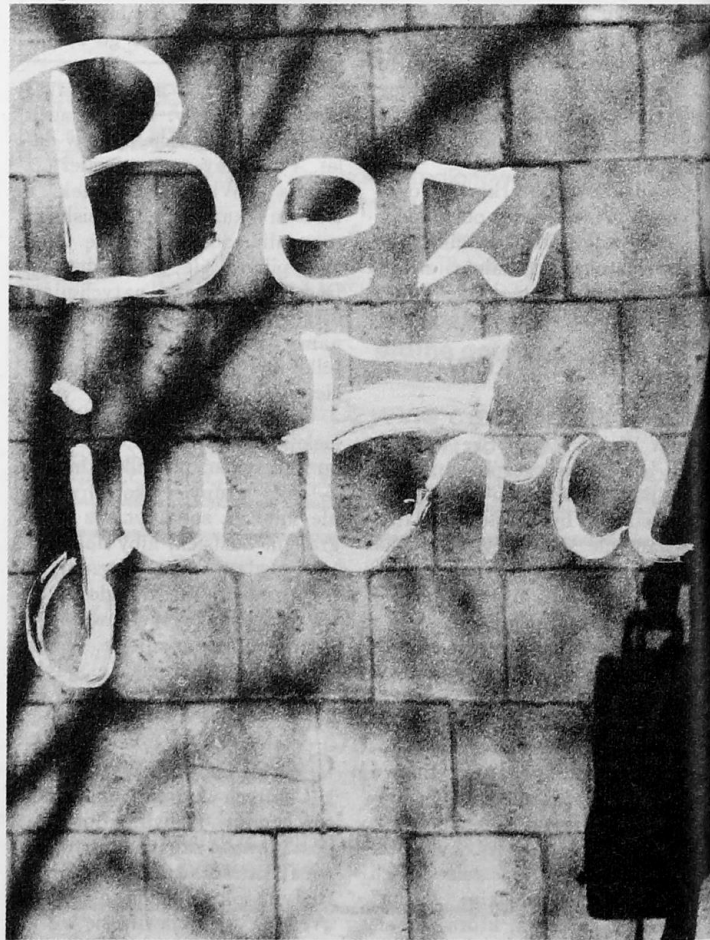 Bez
jutra